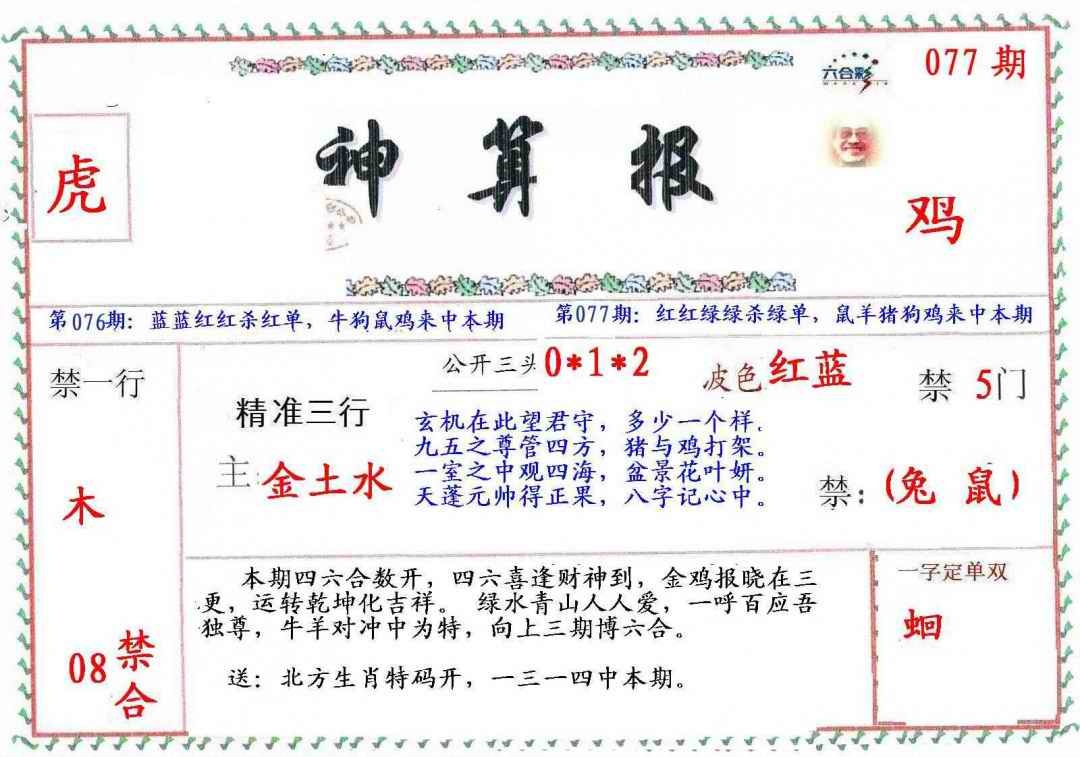 六合彩
077 期
神算报
虎
鸡
第076期：蓝蓝红红杀红单，牛狗鼠鸡来中本期
第077期：红红绿绿杀绿单，鼠羊猪狗鸡来中本期
禁一行
木
08 禁合
公开三头 0*1*2
波色 红蓝
禁 5门
精准三行
主: 金土水
玄机在此望君守，多少一个样.
九五之尊管四方，猪与鸡打架。
一室之中观四海，盆景花叶妍。
天蓬元帅得正果，八字记心中。
禁：(兔 鼠)
本期四六合数开，四六喜逢财神到，金鸡报晓在三
更，运转乾坤化吉祥。 绿水青山人人爱，一呼百应吾
独尊，牛羊对冲中为特，向上三期博六合。
送：北方生肖特码开，一三一四中本期。
一字定单双
蛔